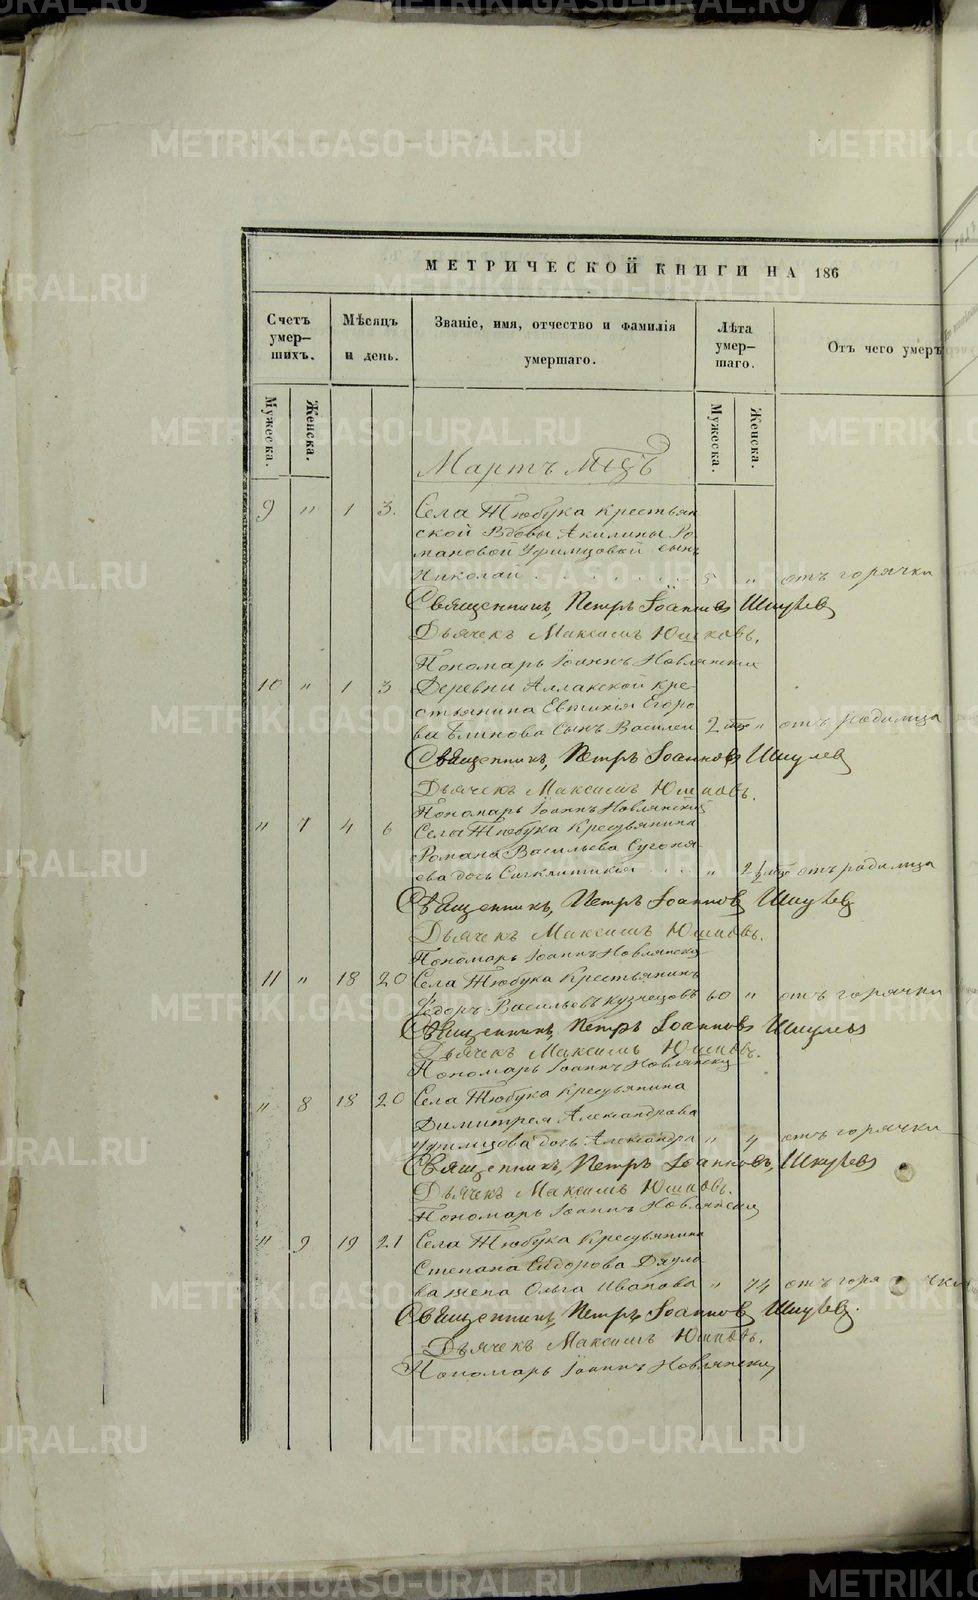 МЕТРИЧЕСКОЙ КНИГИ НА 186
Счетъ умер-шихъ.
Мѣсяцъ и день.
Званіе, имя, отчество и фамилія умершаго.
Лѣта умер-шаго.
Отъ чего умеръ
Мужеска.
Женска.
Мужеска.
Женска.
Мартъ Мцъ
9 " 1 3. Села Тюбука крестьян
ской вдовы Акилины Ро
мановой Уфимцовой сынъ
Николай . . . . . . . . 5 " отъ горячки
Священникъ, Петръ Іоанновъ Шкулевъ
Дьячекъ Максимъ Юшковъ.
Пономарь Іоаннъ Новлянскій
10 " 1 3 Деревни Аллакской кре
стьянина Евтихія Егоро
ва Блинова Сынъ Василей 2 " отъ родимца
Священникъ, Петръ Іоанновъ Шкулевъ
Дьячекъ Максимъ Юшковъ.
Пономарь Іоаннъ Новлянскій
" 7 4 6 Села Тюбука Крестьянина
Романа Васильева Сугоня
ева дочь Синклитикія . . . " отъ родимца
Священникъ, Петръ Іоанновъ Шкулевъ
Дьячекъ Максимъ Юшковъ.
Пономарь Іоаннъ Новлянскій
11 " 18 20 Села Тюбука Крестьянинъ
Ѳедоръ Васильевъ Кузнецовъ 60 " отъ горячки
Священникъ, Петръ Іоанновъ Шкулевъ
Дьячекъ Максимъ Юшковъ.
Пономарь Іоаннъ Новлянскій
" 8 18 20 Села Тюбука Крестьянина
Димитрея Александрова
Уфимцова дочь Александра " 4 отъ горячки
Священникъ, Петръ Іоанновъ, Шкулевъ
Дьячекъ Максимъ Юшковъ.
Пономарь Іоаннъ Новлянскій
" 9 19 21 Села Тюбука Крестьянина
Степана Сидорова
жена Ольга Иванова " 74 отъ горячки
Священникъ, Петръ Іоанновъ Шкулевъ.
Дьячекъ Максимъ Юшковъ.
Пономарь Іоаннъ Новлянскій
METRIKI.GASO-URAL.RU